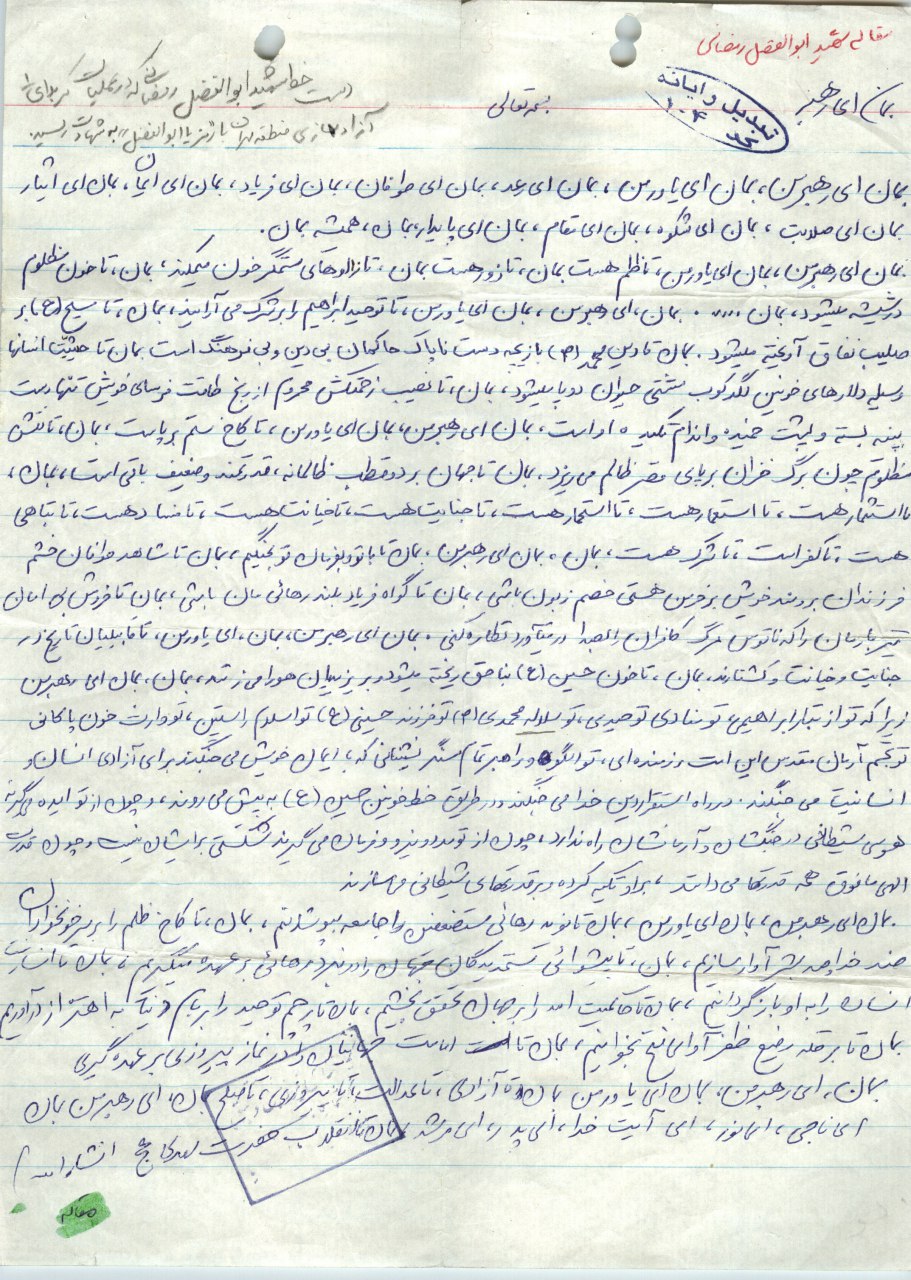 مقاله شهید ابوالفضل رمضانی
دست خط شهید ابوالفضل رمضانی که در عملیات کربلای ۱
آزادسازی منطقه مهران با رمز یا ابوالفضل به شهادت رسید
بمان ای رهبر
بسمه تعالی
تبدیل و ایانه
۱۰۴
بمان ای رهبر من، بمان ای یاور من، بمان ای رعد، بمان ای طوفان، بمان ای فریاد، بمان ای ایمان، بمان ای ایثار
بمان ای صلابت، بمان ای شکوه، بمان ای مقام، بمان ای پایدار، بمان، همیشه بمان.
بمان ای رهبر من، بمان ای یاور من، تا ظلم هست بمان، تا زور هست بمان، تا زالوهای ستمگر خون میمکند، بمان، تا خون مظلوم
در شیشه میشود، بمان .... . بمان، ای رهبر من، بمان ای یاور من، تا توحید ابراهیم را بر شرک می آرایند، بمان، تا مسیح (ع) بر
صلیب نفاق آویخته میشود. بمان تا دین محمد (ص) بازیچه دست ناپاک حاکمان بی دین و بی فرهنگ است بمان تا حیثیت انسانها
وسیله دلارهای خونین لگدکوب مشتی حیوان دو پا میشود، بمان، تا نصیب زحمتکش محروم از رنج طاقت فرسای خویش تنها دست
پینه بسته و پشت خمیده و اندام تکیده او است، بمان ای رهبر من، بمان ای یاور من، تا کاخ ستم برپاست، بمان، تا نقش
مظلوم چون برگ خزان بر پای قصر ظالم می ریزد، بمان تا جهان بر دو قطب ظالمانه، قدرتمند و ضعیف باقی است، بمان،
تا استثمار هست، تا استعمار هست، تا استحمار هست، تا جنایت هست، تا خیانت هست، تا فساد هست، تا تباهی
هست، تا کفر است، تا شرک هست، بمان. بمان ای رهبر من، بمان تا با تو و بفرمان تو بجنگیم، بمان تا شاهد طوفان خشم
فرزندان برومند خویش بر خرمن هستی خصم زبون باشی، بمان تا گواه فریاد بلند رهائی مان باشی، بمان تا خروش بی امان
تیربارمان را که ناقوس مرگ کافران را بصدا در میآورد نظاره کنی. بمان ای رهبر من، بمان، ای یاور من، تا قابیلیان تاریخ در
جنایت و خیانت و کشتارند، بمان، تا خون حسین (ع) بناحق ریخته میشود و بر یزیدیان هورا می زنند، بمان، بمان ای رهبر من
زیرا که تو از تبار ابراهیمی، تو منادی توحیدی، تو سلاله محمدی (ص) تو فرزند حسینی (ع) تو اسلام راستین، تو وارث خون پاکانی
تو تجسم آرمان مقدس این امت رزمنده ای، تو الگو و راهبر تمام سنگر نشینانی که با ایمان خویش می جنگند برای آزادی انسان و
انسانیت می جنگند. در راه استقرار دین خدا می جنگند و در طریق خط خونین حسین (ع) به پیش می روند، و چون از تو ایده می گیرند
هوس شیطانی در جنگشان و آرمانشان راه ندارد، چون از تو مدد و نیرو و فرمان می گیرند شکستی برایشان نیست و چون قدرت
الهی مافوق همه قدرتها می دانند، بر او تکیه کرده و بر قدرتهای شیطانی می تازند
بمان ای رهبر من، بمان ای یاور من، بمان تا نوید رهائی مستضعفین را جامه بپوشانیم، بمان، تا کاخ ظلم را بر سر خونخواران
ضد خدا و ضد بشر آوار سازیم، بمان، تا پیشوائی ستمدیدگان جهان را در نبرد رهائی بر عهده میگیریم، بمان تا انسانیت
انسان را به او باز گردانیم، بمان تا حاکمیت الله را بر جهان تحقق بخشیم، بمان تا پرچم توحید را بر بام دنیا به اهتزاز در آوریم
بمان تا بر قله رفیع ظفر آوای فتح بخوانیم، بمان تا امامت جهانیان را در نماز پیروزی بر عهده گیری
بمان، ای رهبر من، بمان ای یاور من بمان تا آزادی، تا عدالت، تا پیروزی، بمان، ای رهبر من بمان
ای ناجی، ای نور، ای آیت خدا، ای پدر، ای مرشد، بمان تا انقلاب حضرت مهدی عج انشاءالله
مقاله